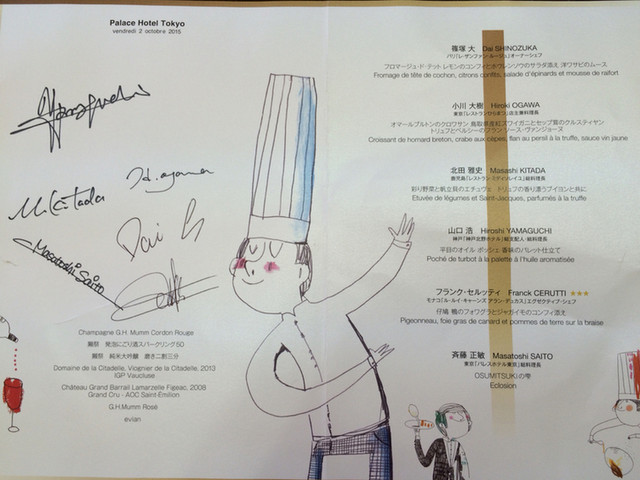 Palace Hotel Tokyo
vendredi 2 octobre 2015
M. Kitada
Dai S
Masatoshi Saito
Champagne G.H. Mumm Cordon Rouge
獺祭 発泡にごり酒スパークリング50
獺祭 純米大吟醸 磨き二割三分
Domaine de la Citadelle, Viognier de la Citadelle, 2013
IGP Vaucluse
Château Grand Barrail Lamarzelle Figeac, 2008
Grand Cru - AOC Saint-Emilion
G.H.Mumm Rosé
evian
篠塚 大 Dai SHINOZUKA
パリ「レザンファン ルージュ」オーナーシェフ
フロマージュ・ド・テット レモンのコンフィとホウレンソウのサラダ添え 洋ワサビのムース
Fromage de tête de cochon, citrons confits, salade d'épinards et mousse de raifort
小川 大樹 Hiroki OGAWA
東京「レストランひらまつ」店主兼料理長
オマールブルトンのクロワサン 鳥取県産松葉ズワイガニとセップ茸のクルスティヤン
トリュフとペルシーのフラン ソース・ヴァンジョーヌ
Croissant de homard breton, crabe aux cèpes, flan au persil à la truffe, sauce vin jaune
北田 雅史 Masashi KITADA
鹿児島「レストラン ミディソレイユ」総料理長
彩り野菜と帆立貝のエチュヴェ トリュフの香り漂うブイヨンと共に
Etuvée de légumes et Saint-Jacques, parfumés à la truffe
山口 浩 Hiroshi YAMAGUCHI
神戸「神戸北野ホテル」総支配人・総料理長
平目のオイル ポッシェ 香味のパレット仕立て
Poché de turbot à la palette à l'huile aromatisée
フランク・セルッティ Franck CERUTTI ★★★
モナコ「ル・ルイ・キャーンズ アラン・デュカス」エグゼクティブ・シェフ
仔鳩 鴨のフォワグラとジャガイモのコンフィ添え
Pigeonneau, foie gras de canard et pommes de terre sur la braise
斉藤 正敏 Masatoshi SAITO
東京「パレスホテル東京」総料理長
OSUMITSUKIの雫
Eclosion